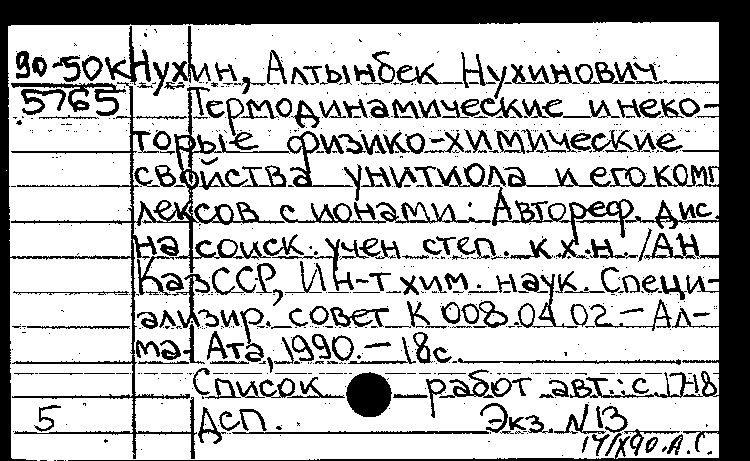 90-50к Нухин, Алтынбек Нухинович
5765 Термодинамические и неко-
торые физико-химические
свойства унитиола и его комп
лексов с ионами: Автореф. дис.
на соиск. учен степ. к.х.н. /АН
КазССР, Ин-т хим. наук. Специ-
ализир. совет К 008.04.02. – Ал-
ма-Ата, 1990. – 18с.
Список работ авт.: с. 17-18
5 ДСП. Экз. N 13
17/X90. А.С.